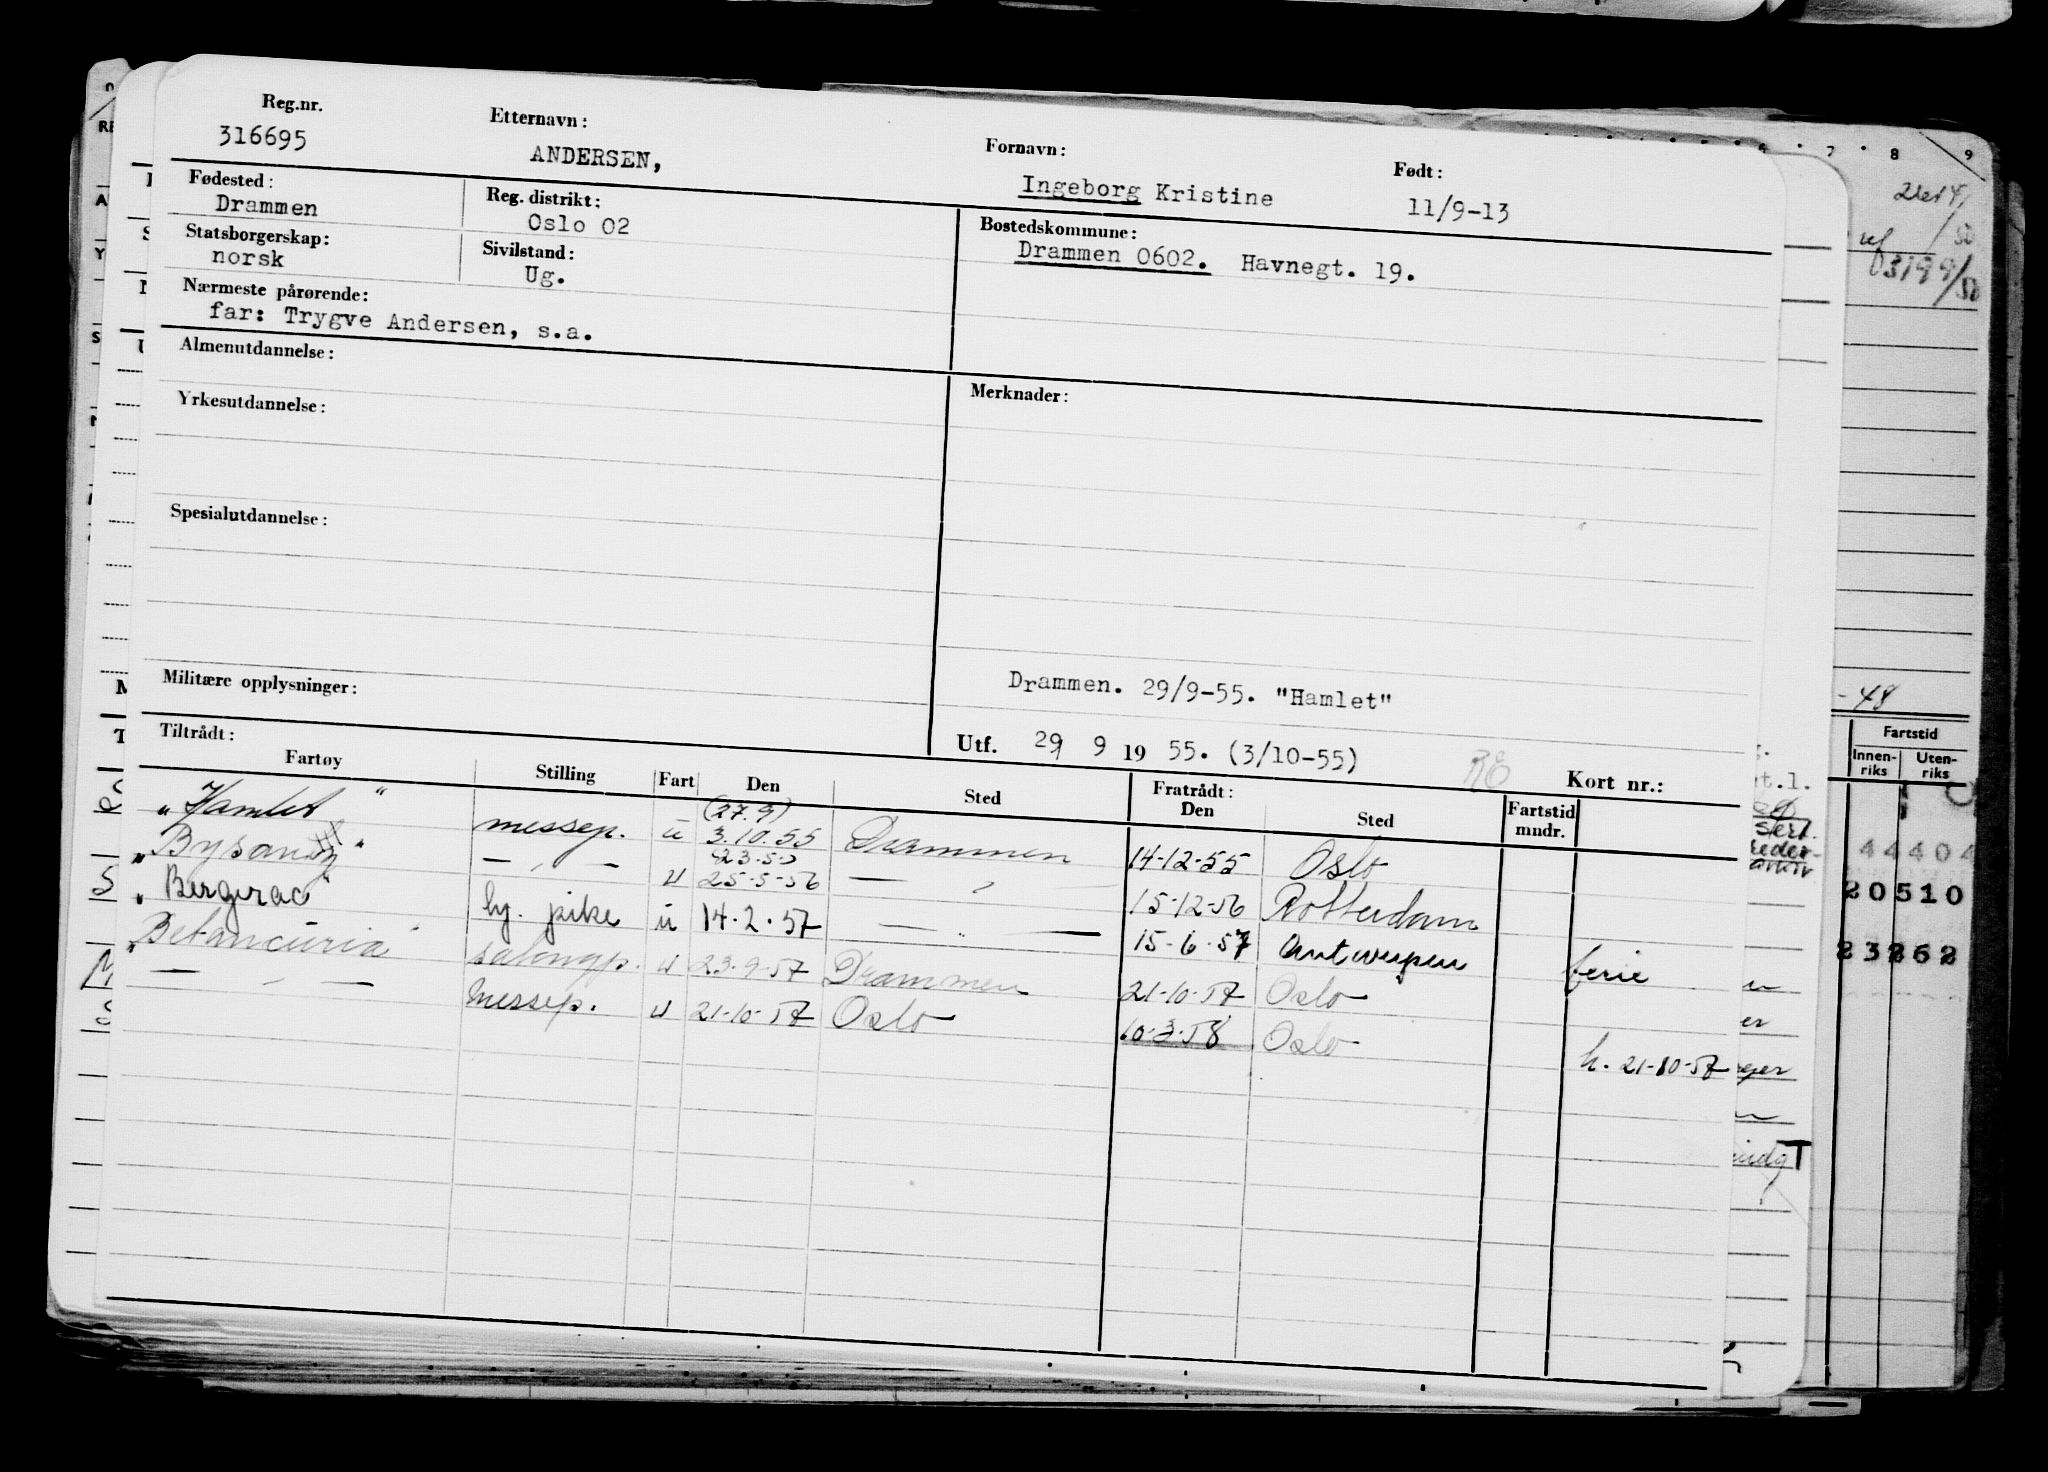 Reg.nr. Etternavn: Fornavn: Født:
316695 ANDERSEN, Ingeborg Kristine 11/9-13
Fødested: Reg. distrikt: Bostedskommune:
Drammen Oslo 02 Drammen 0602. Havnegt. 19.
Statsborgerskap: Sivilstand:
norsk Ug.
Nærmeste pårørende:
far: Trygve Andersen, s.a.
Almenutdannelse:
Yrkesutdannelse: Merknader:
Spesialutdannelse:
Militære opplysninger: Drammen. 29/9-55. "Hamlet"
Tiltrådt: Utf. 29 9 19 55. (3/10-55) Kort nr.:
Fartøy Stilling Fart Den Sted Fratrådt: Den Sted Fartstid mndr.
(27.9)
"Hamlet" messep. u 3.10.55 Drammen 14-12-55 Oslo
23.5.
— " — u 25-5-56 — " — 15-12-56 Rotterdam
"Bergerac" by. pike u 14.2.57 — " — 15-6-57 Antwerpen ferie
"Betancuria" salongp. u 23.9.57 Drammen 21-10-57 Oslo
— " — messep. u 21-10-57 Oslo 10-3-58 Oslo h. 21-10-57
7 8 9
03199/50
-48
Fartstid
Innen-riks Uten-riks
44404
20510
23262